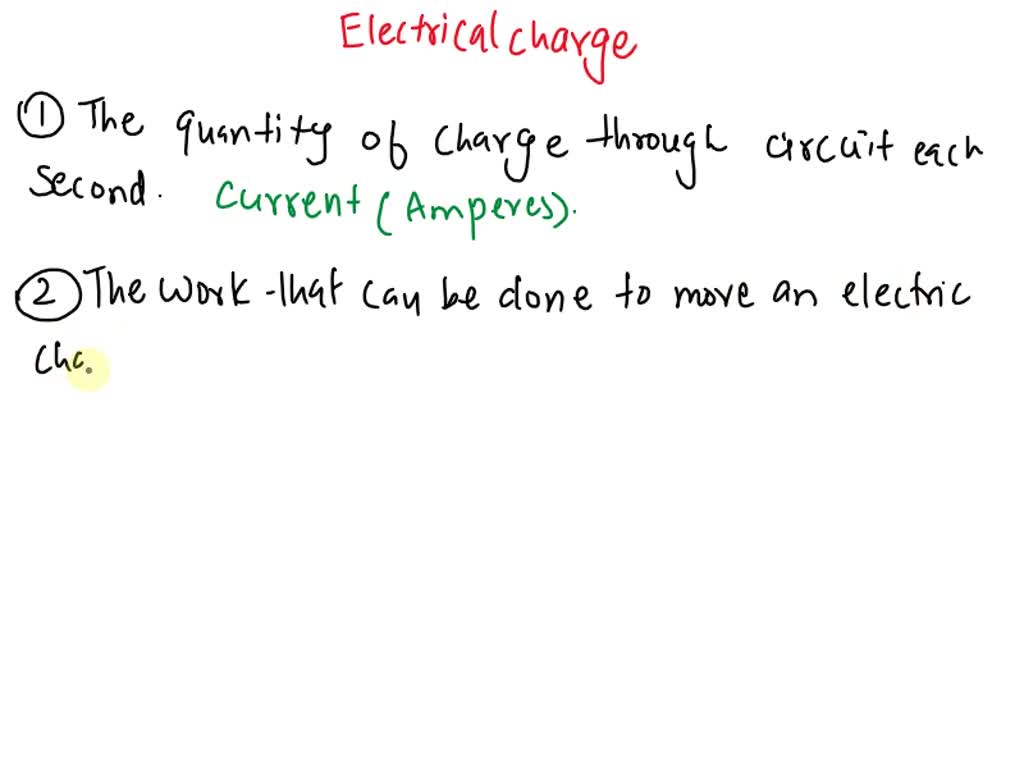 Electrical charge
① The quantity of charge through circuit each
second. Current (Amperes).
② The work that can be done to move an electric
cha